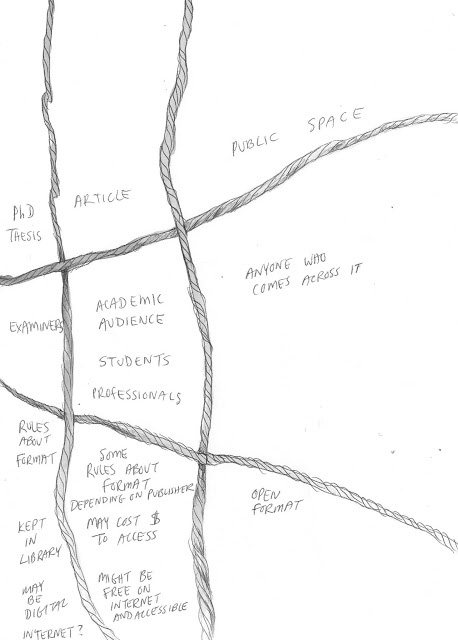 PhD
THESIS
ARTICLE
PUBLIC SPACE
EXAMINERS
ACADEMIC
AUDIENCE
STUDENTS
PROFESSIONALS
ANYONE WHO
COMES ACROSS IT
RULES
ABOUT
FORMAT
SOME
RULES ABOUT
FORMAT
DEPENDING ON PUBLISHER
OPEN
FORMAT
KEPT
IN
LIBRARY
MAY COST $
TO ACCESS
MAY
BE
DIGITAL
INTERNET?
MIGHT BE
FREE ON
INTERNET
AND ACCESSIBLE